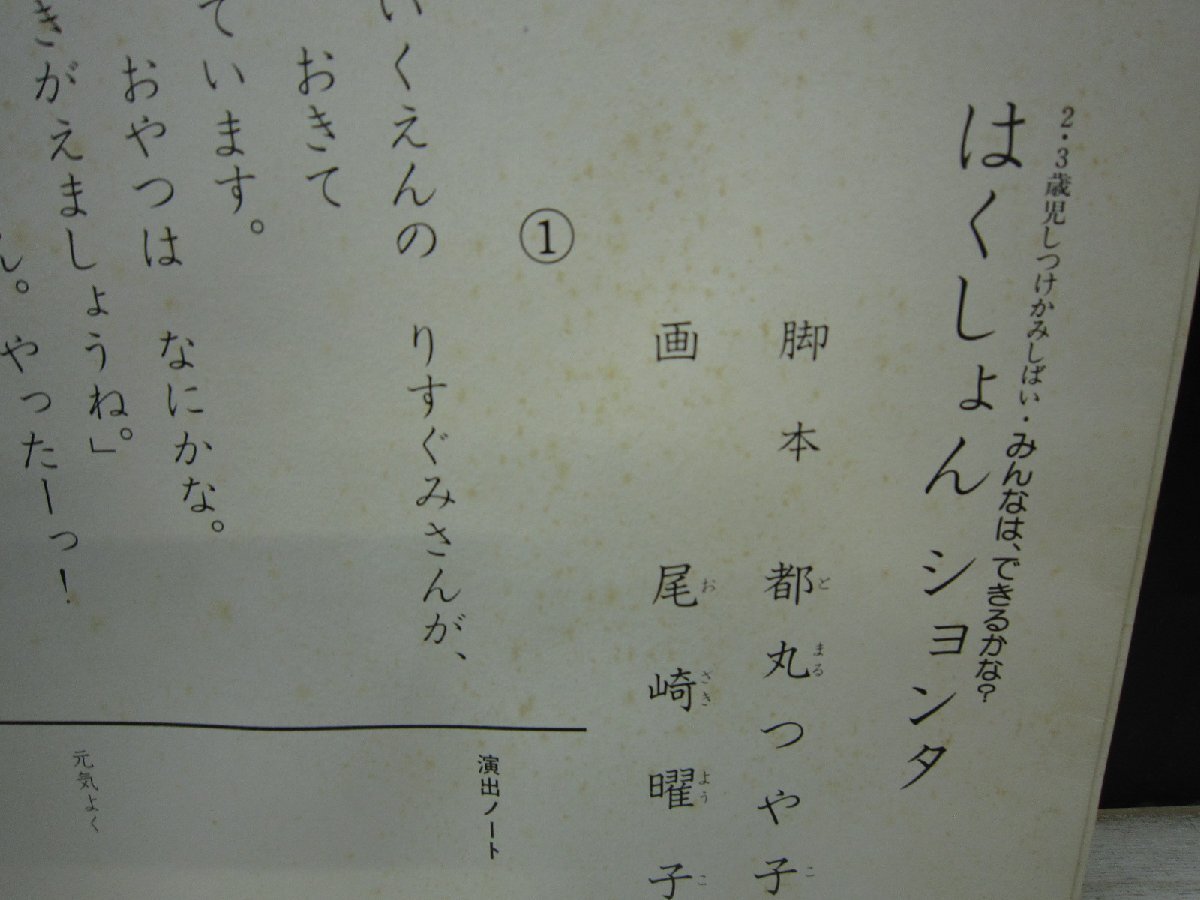 2・3歳児しつけかみしばい・みんなは、できるかな？
はくしょん ションタ
脚本 都丸つや子
とまる こ
画 尾崎曜子
おざきようこ
①
いくえんの りすぐみさんが、
おきて
ています。
おやつは なにかな。
きがえましょうね。」
ん。やったーっ！
演出ノート
元気よく